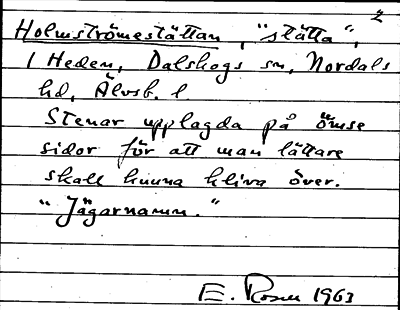 2
Holmströmestättan, "stätta",
1 Heden, Dalskogs sn, Nordals
hd, Älvsb. l
Stenar upplagda på ömse
sidor för att man lättare
skall kunna kliva över.
"Jägarnamn."
E. Rosen 1963